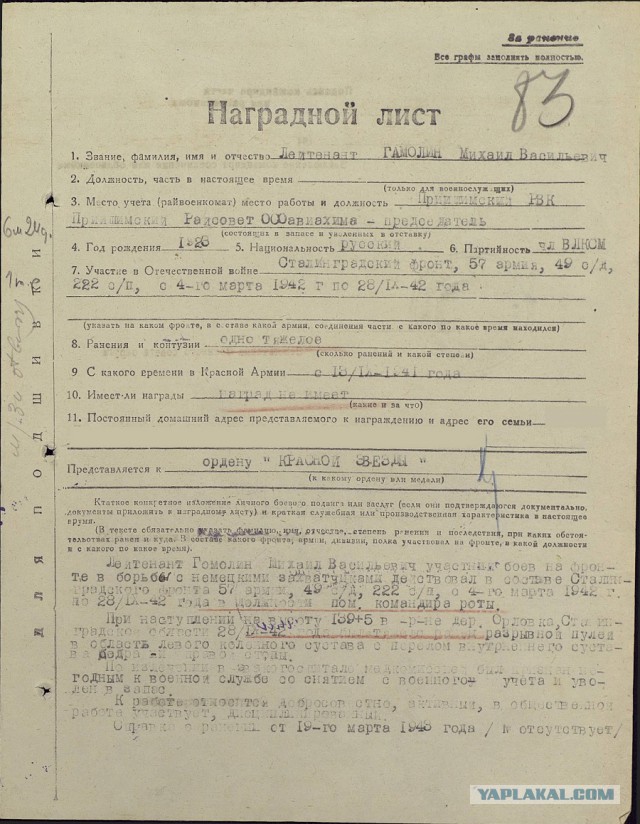 За ранение
Все графы заполнять полностью.
83
Наградной лист
1. Звание, фамилия, имя и отчество Лейтенант ГАМОЛИН Михаил Васильевич
2. Должность, часть в настоящее время
(только для военнослужащих)
3. Место учета (райвоенкомат) место работы и должность Приишимский РВК
Приишимский Райсовет ОСОавиахима - председатель
(состоящих в запасе и уволенных в отставку)
4. Год рождения 5. Национальность русский 6. Партийность чл ВЛКСМ
7. Участие в Отечественной войне Сталинградский фронт, 57 армия, 49 с/д,
222 с/п, с 4-го марта 1942 г по 28/IX-42 года
(указать на каком фронте, в составе какой армии, соединения части, с какого по какое время находился)
8. Ранения и контузии одно тяжелое
(сколько ранений и какой степени)
9 С какого времени в Красной Армии с 13/IX-1941 года
10. Имеет-ли награды наград не имеет
(какие и за что)
11. Постоянный домашний адрес представляемого к награждению и адрес его семьи
Представляется к ордену " КРАСНОЙ ЗВЕЗДЫ "
(к какому ордену или медали)
Краткое конкретное изложение личного боевого подвига или заслуг (если они подтверждаются документально,
документы приложить к наградному листу) и краткая служебная или производственная характеристика в настоящее
время.
(В тексте обязательно указать степень ранения и последствия, при каких обстоя-
тельствах ранен и куда. В составе какого фронта, армии, дивизии, полка участвовал на фронте, в какой должности
и с какого по какое время).
Лейтенант Гомолин Михаил Васильевич участник боев на фрон-
те в борьбе с немецкими захватчиками действовал в составе Сталин-
градского фронта 57 армии, 49 с/д, 222 с/п, с 4-го марта 1942 г.
по 28/IX-42 года в должности пом. командира роты.
При наступлении на высоту 139+5 в р-не дер. Орловка, Сталин-
градской области 28/IX-42 разрывной пулей
в область левого коленного сустава с
По излечении в
годным к военной службе со снятием с военного учета и уво-
лен в запас.
К работе относится добросовестно, активный, в общественной
работе участвует, дисциплинированный.
Справка о ранении от 19-го марта 1943 года / № отсутствует/
для подшивки
YAPLAKAL.COM